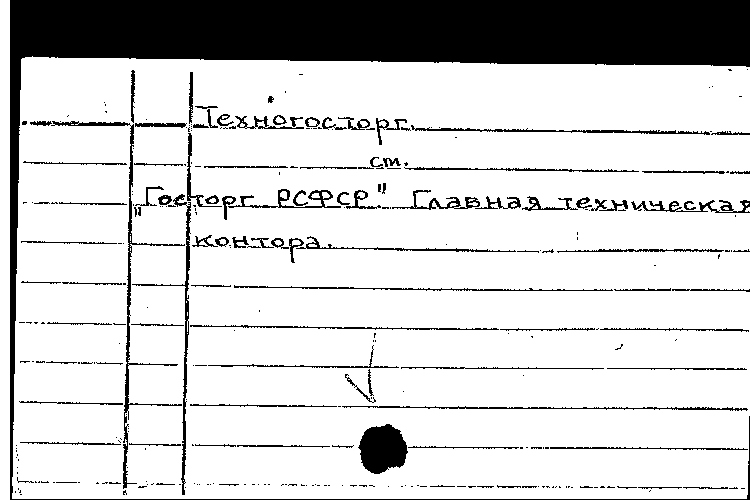 Техногосторг.
ст.
„Госторг РСФСР" Главная техническая
контора.